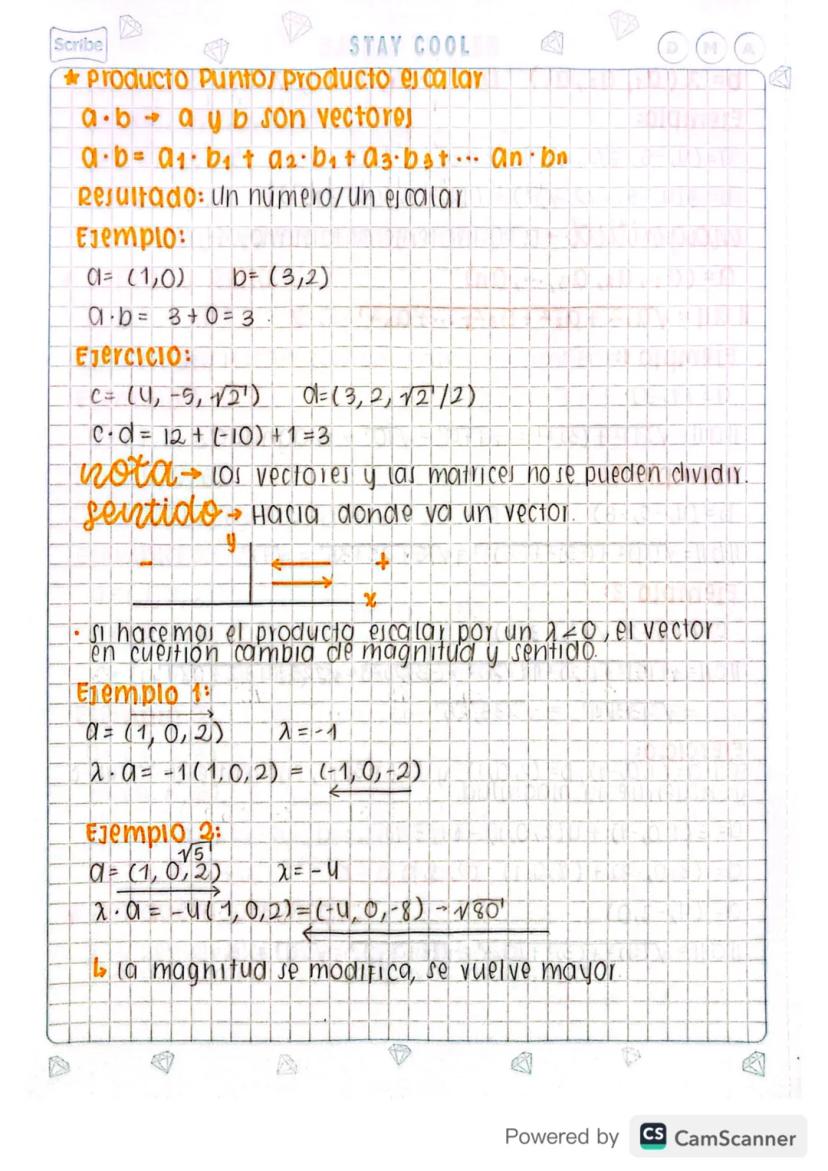 Scribe
STAY COOL
D M A
* Producto Punto/producto escalar
a·b → a y b son vectores
a·b= a₁·b₁ + a₂·b₁ + a₃·b₃ + ··· an·bn
Resultado: un número/un escalar
Ejemplo:
a= (1,0) b= (3,2)
a·b= 3+0=3.
Ejercicio:
c= (4, -5, √2) d=(3, 2, √2/2)
c·d= 12 + (-10) + 1 =3
nota→ Los vectores y las matrices no se pueden dividir.
sentido→ Hacia donde va un vector.
y
- +
x
· Si hacemos el producto escalar por un λ<0, el vector
en cuestión cambia de magnitud y sentido.
Ejemplo 1:
a= (1, 0, 2) λ=-1
λ·a= -1(1,0,2) = (-1,0,-2)
Ejemplo 2:
√5
a= (1, 0,2) λ=-4
λ·a = -4(1,0,2)=(-4,0,-8) → √80
↳ la magnitud se modifica, se vuelve mayor.
Powered by CS CamScanner